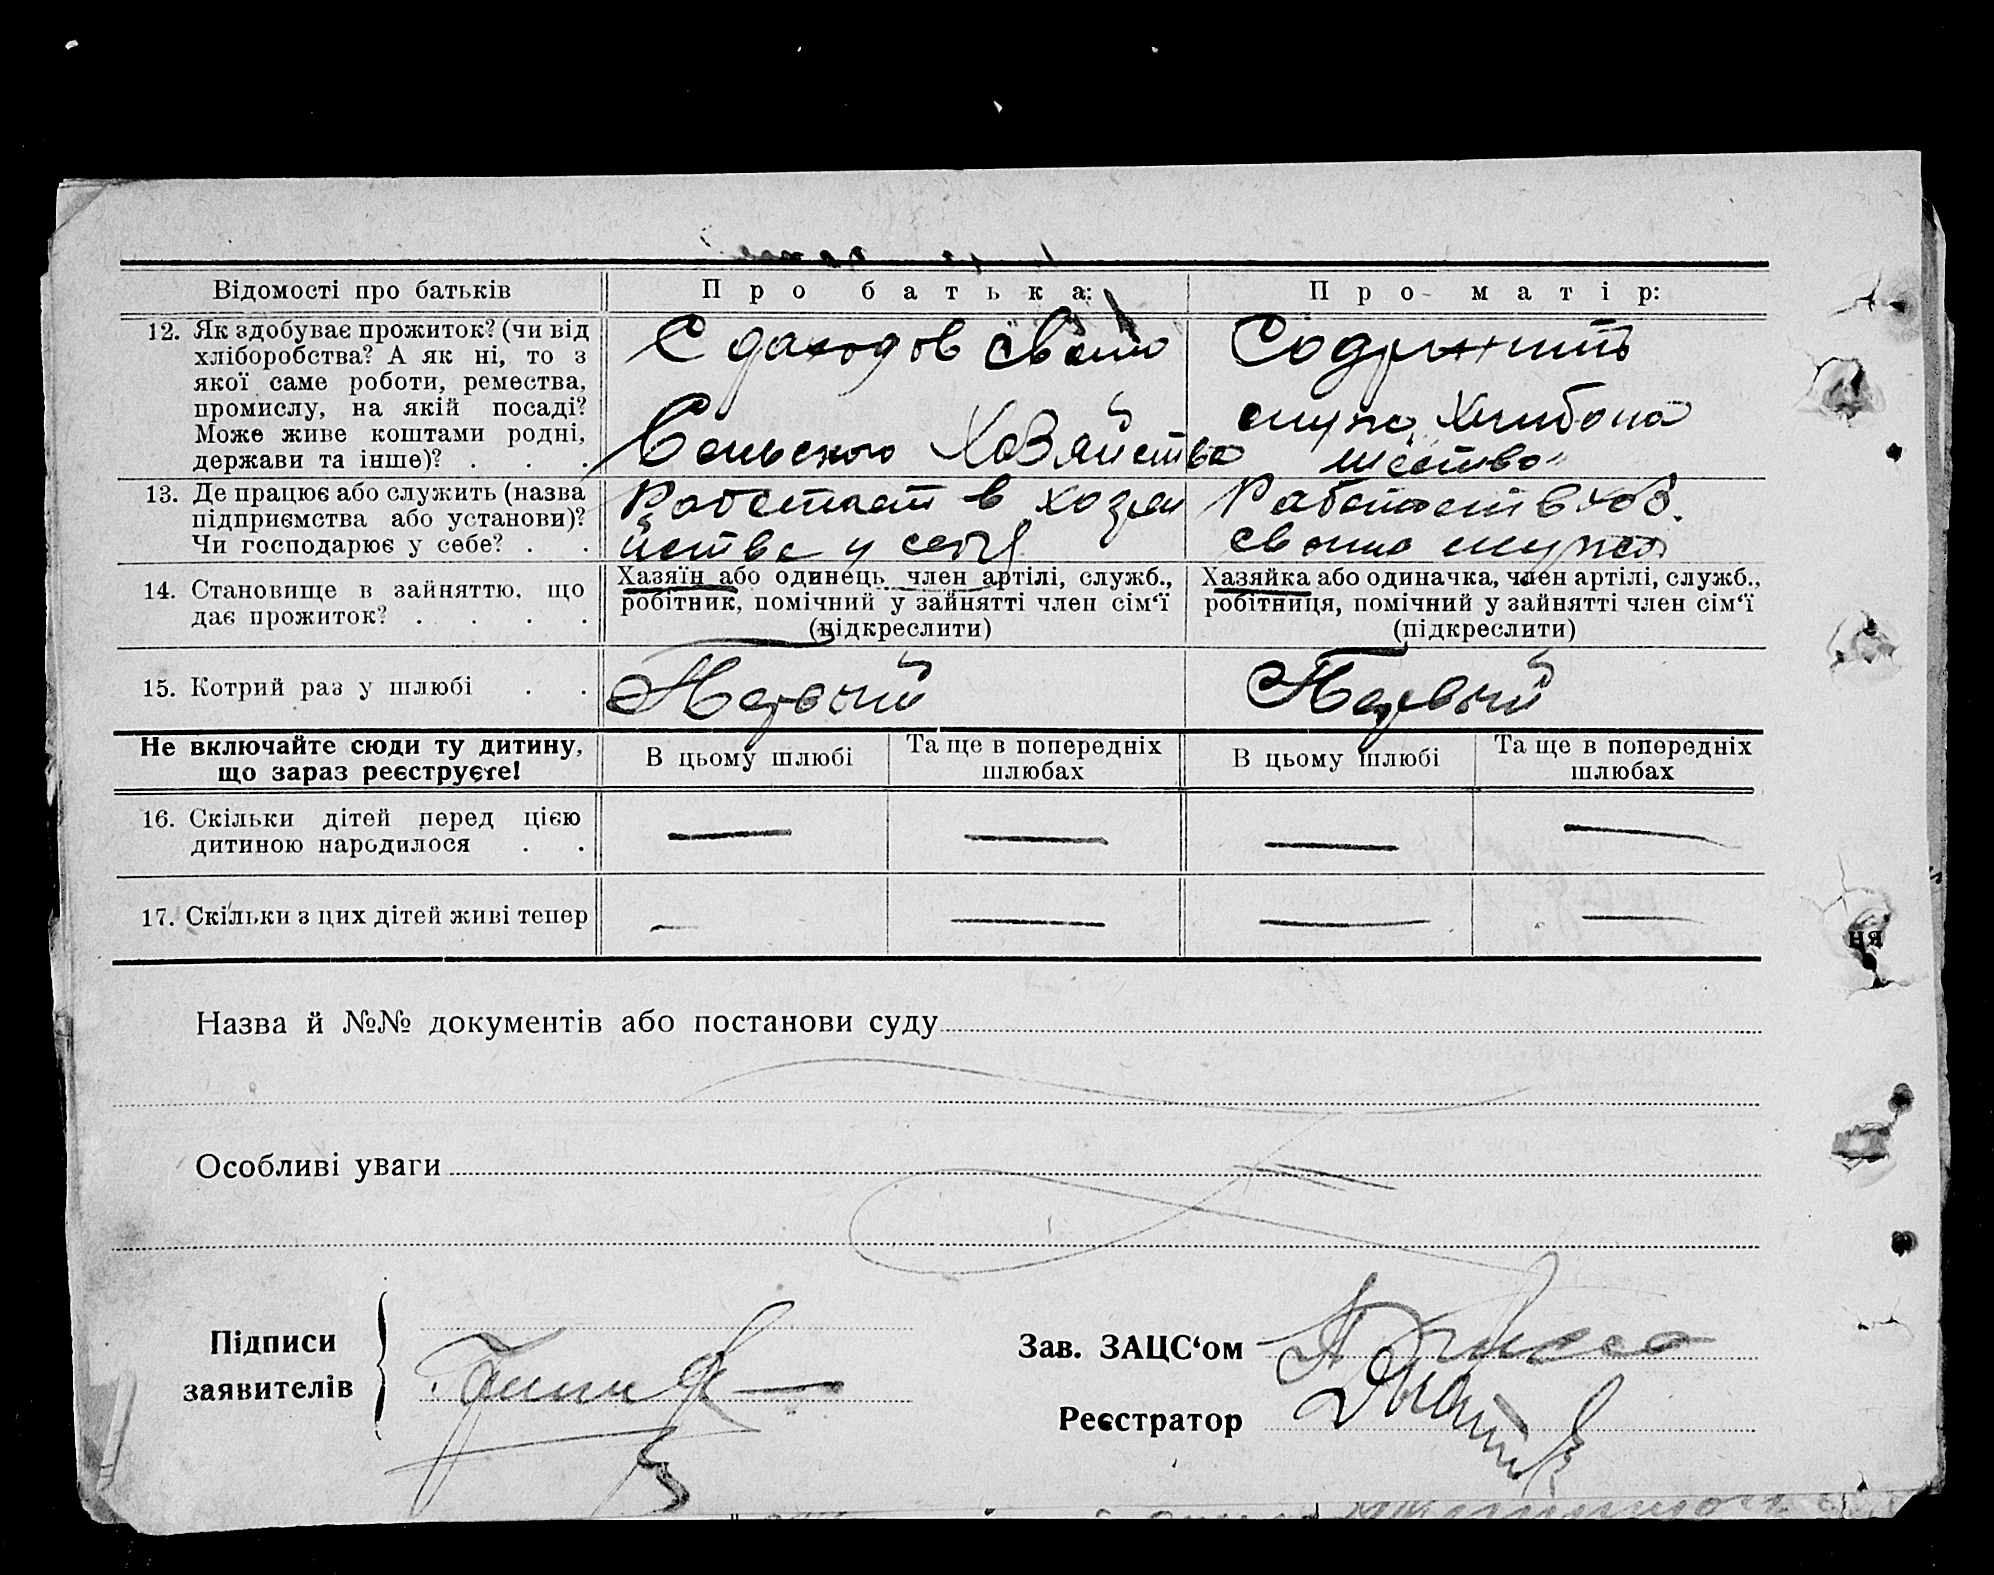 Відомості про батьків
Про батька:
Про матір:
12. Як здобуває прожиток? (чи від
хліборобства? А як ні, то з
якої саме роботи, ремества,
промислу, на якій посаді?
Може живе коштами родні,
держави та інше)? . . .
С доходов своего
Сельского Хозяйства
Содржить
мужа
13. Де працює або служить (назва
підприємства або установи)?
Чи господарює у себе? . .
Работает в хозяй
стве у себя
Работает в хоз.
своего мужа
14. Становище в зайняттю, що
дає прожиток? . . . .
Хазяїн або одинець, член артілі, служб.,
робітник, помічний у зайнятті член сім‘ї
(підкреслити)
Хазяйка або одиначка, член артілі, служб.,
робітниця, помічний у зайнятті член сім‘ї
(підкреслити)
15. Котрий раз у шлюбі . .
Первый
Первый
Не включайте сюди ту дитину,
що зараз реєструєте!
В цьому шлюбі
Та ще в попередніх
шлюбах
В цьому шлюбі
Та ще в попередніх
шлюбах
16. Скільки дітей перед цією
дитиною народилося . .
— — — —
17. Скільки з цих дітей живі тепер
— — — —
ня
Назва й №№ документів або постанови суду
Особливі уваги
Підписи
заявителів
Зав. ЗАЦС‘ом
Реєстратор